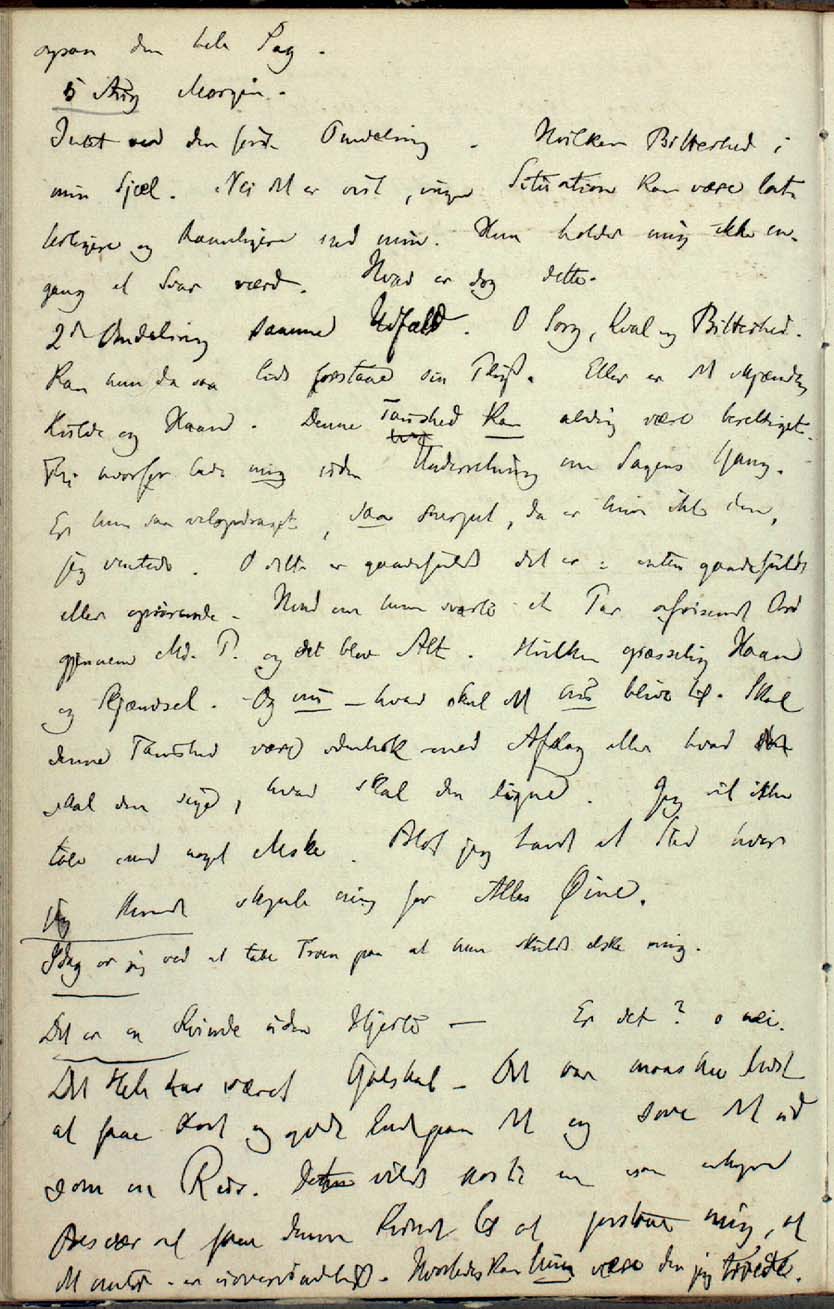 ogsaa den hele Sag.
5 Aug Morgen.
Intet ved den første Omdeling. Hvilken Bitterhed i
min Sjæl. Nei det er vist, ingen Situation kan være lat-
terligere og kummerligere end min. Hun holder mig ikke en-
gang et Svar værd. Hvad er dog dette.
2den Omdeling samme Udfald. O Sorg, Kval og Bitterhed.
Kan hun da saa lidt forstaae sin Pligt. Eller er det
Kulde og Haan. Denne Taushed kan aldrig være berettiget.
Thi hvorfor lade mig uden Underretning om Sagens Gang.
Er hun saa, saa, da er hun ikke den,
jeg ventede. O dette er gaadefuldt det er: enten gaadefuldt
eller oprørende. Hvad om hun svarte et Par afvisende Ord
gjennem Md. P. og det blev Alt. Hvilken græsselig Haan
og Skjændsel. Og nu – hvad skal det nu blive til. Skal
denne Taushed være eensbetydende med Afslag eller hvad
skal den sige, hvad skal den ligne. Jeg vil ikke
tale med noget Mske. Blot jeg fandt et Sted hvor
jeg kunde skjule mig for Alles Øine.
Idag er jeg ved at tabe Troen paa at hun skulde elske mig.
Det er en Kvinde uden Hjerte — Er det? o nei.
Det Hele har været Galskab – Det var maaskee bedst
at faae kort og godt Ende paa det og sove det ud
som en Ruus. Det vilde koste en
Besvær at faae denne Kvinde til at forstaae mig, at
det er uovervindeligt. Hvorledes kan hun være den jeg troede.